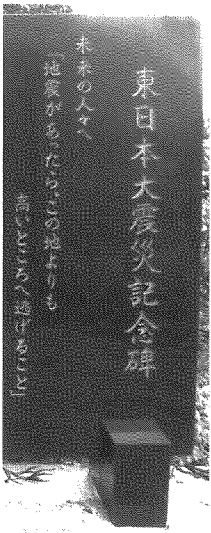 東日本大震災記念碑
未来の人々へ
「地震があったら、この地よりも
高いところへ逃げること」